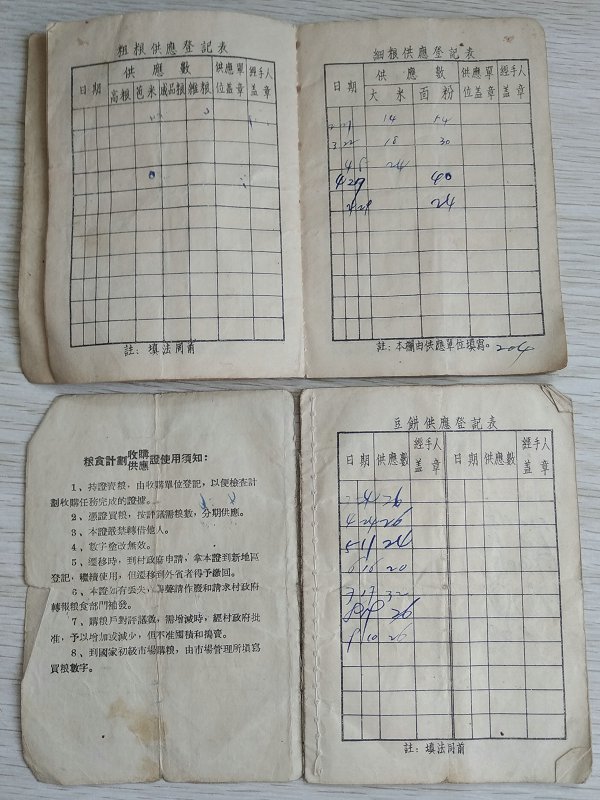 粗粮供應登記表
日期 供應數 供應單位盖章 經手人盖章
高粮 苞米 成品粮 雜粮
註：填法同前
細粮供應登記表
日期 供應數 供應單位盖章 經手人盖章
大米 面粉
14 54
3.22 18 30
4 5 24
4 29 40
24
註：本欄由供應單位填寫。204
粮食計劃收購供應證使用須知：
1、持證賣粮，由收購單位登記，以便檢查計
劃收購任務完成的證據。
2、憑證買粮，按評議需粮數，分期供應。
3、本證嚴禁轉借他人。
4、数字塗改無效。
5、遷移時，到村政府申請，拿本證到新地區
登記，繼續使用，但遷移到外省者得予繳回。
6、本證如有丟失，請請求村政府
轉報粮食部門補發。
7、購粮戶對評議数，需增減時，經村政府批
准，予以增加或減少，但不准囤積和搗賣。
8、到國家初級市場購粮，由市場管理所填寫
買粮數字。
豆餅供應登記表
日期 供應數 經手人盖章 日期 供應數 經手人盖章
26
4 24 26
5 11 24
6 16 20
7 17 32
26
9 10 26
註：填法同前